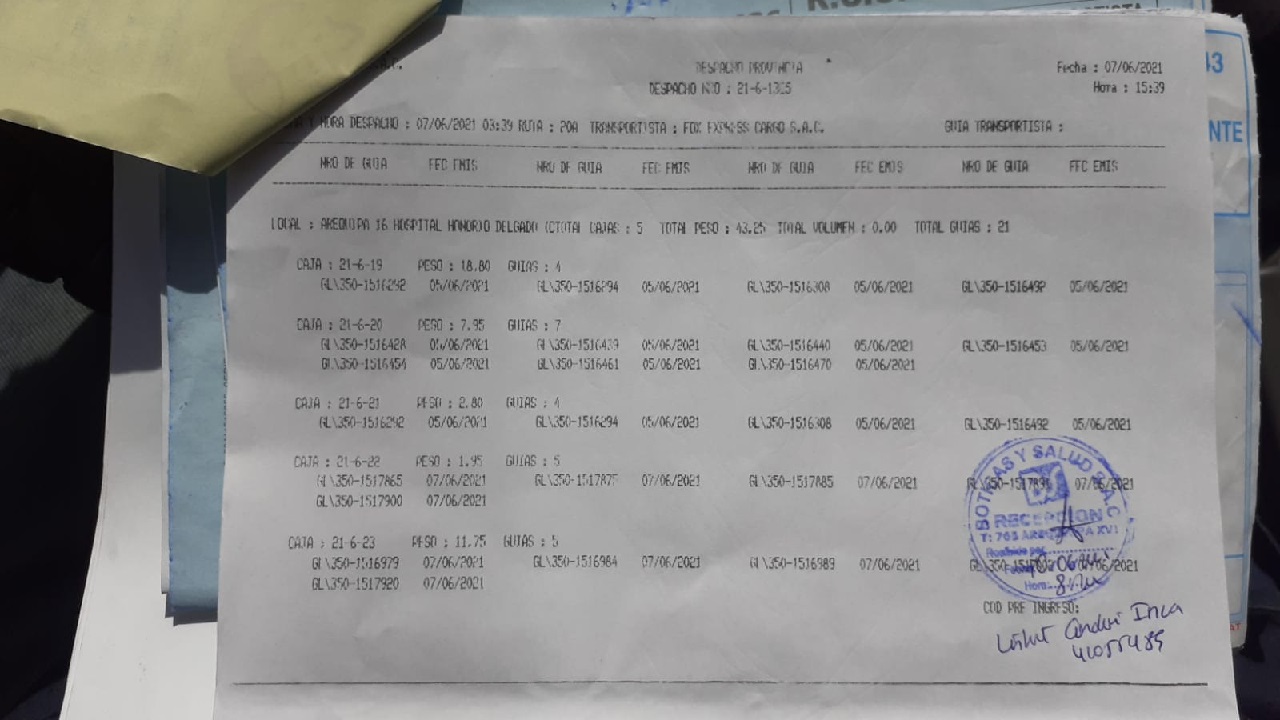 DESPACHO PROVINCIA
Fecha : 07/06/2021
DESPACHO NRO : 21-6-1335
Hora : 15:39
Y HORA DESPACHO : 07/06/2021 03:39 RUTA : 20A TRANSPORTISTA : FOX EXPRESS CARGO S.A.C. GUIA TRANSPORTISTA :
NRO DE GUIA FEC EMIS NRO DE GUIA FEC EMIS NRO DE GUIA FEC EMIS NRO DE GUIA FEC EMIS
LOCAL : AREQUIPA 16 HOSPITAL HONORIO DELGADO (CTOTAL CAJAS : 5 TOTAL PESO : 43.25 TOTAL VOLUMEN : 0.00 TOTAL GUIAS : 21
CAJA : 21-6-19 PESO : 18.80 GUIAS : 4
GL\350-1516292 05/06/2021 GL\350-1516294 05/06/2021 GL\350-1516308 05/06/2021 GL\350-1516492 05/06/2021
CAJA : 21-6-20 PESO : 7.95 GUIAS : 7
GL\350-1516428 05/06/2021 GL\350-1516439 05/06/2021 GL\350-1516440 05/06/2021 GL\350-1516453 05/06/2021
GL\350-1516454 05/06/2021 GL\350-1516461 05/06/2021 GL\350-1516470 05/06/2021
CAJA : 21-6-21 PESO : 2.80 GUIAS : 4
GL\350-1516292 05/06/2021 GL\350-1516294 05/06/2021 GL\350-1516308 05/06/2021 GL\350-1516492 05/06/2021
CAJA : 21-6-22 PESO : 1.95 GUIAS : 5
GL\350-1517865 07/06/2021 GL\350-1517875 07/06/2021 GL\350-1517885 07/06/2021 07/06/2021
GL\350-1517900 07/06/2021
CAJA : 21-6-23 PESO : 11.75 GUIAS : 5
GL\350-1516979 07/06/2021 GL\350-1516984 07/06/2021 GL\350-1516989 07/06/2021
GL\350-1517920 07/06/2021
BOTICAS Y SALUD S.A.C
RECEPCION
Recibido por
Fecha
Hora:
COD PRE INGRESO:
Inca
NTE